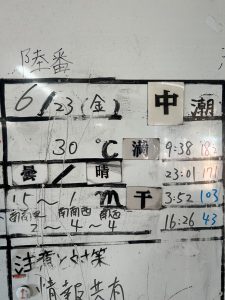 陸番
6/23(金) 中潮
30 ℃ 満 9:38 182
曇/晴 23:01 171
1.5～1 m 干 3:52 103
南南東 南南西 南西
2～4～4 16:26 43
注意と対策
情報共有